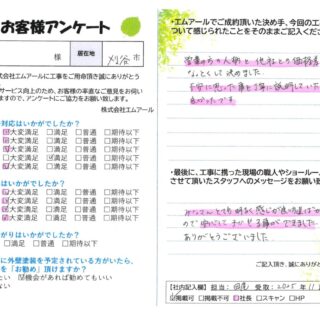 お客様アンケート
様 居在地 刈谷 市
株式会社エムアールに工事をご用命頂き誠にありがとう
サービス向上のため、お客様の率直なご意見をお伺い
ますので、アンケートにご協力をお願い致します。
株式会社エムアール
対応はいかがでしたか?
大変満足 □満足 □普通 □期待以下
大変満足 □満足 □普通 □期待以下
大変満足 □満足 □普通 □期待以下
□大変満足 満足 □普通 □期待以下
大変満足 □満足 □普通 □期待以下
はいかがでしたか?
大変満足 □満足 □普通 □期待以下
大変満足 □満足 □普通 □期待以下
大変満足 □満足 □普通 □期待以下
がりはいかがでしたか?
大変満足 □満足 □普通 □期待以下
に外壁塗装を予定されている方がいたら、
を「お勧め」頂けますか?
たい 機会があれば勧めてもいい
ない
・エムアールでご成約頂いた決め手、今回のエ
ついて感じられたことをそのままご記入くださ
営業の人柄と他社との価格差
などとして決めました。
不安に思った事を丁寧に説明していただ
良かったです。
・最後に、工事に携った現場の職人やショールーム
させて頂いたスタッフへのメッセージをお願い致
ので安心してお任せする事ができました。
ありがとうございました。
ご記入頂き、誠にありがとう
【社内記入欄】 担当: 受取: 2025 年 11 月
掲載可 □掲載不可 社長 □スキャン □HP